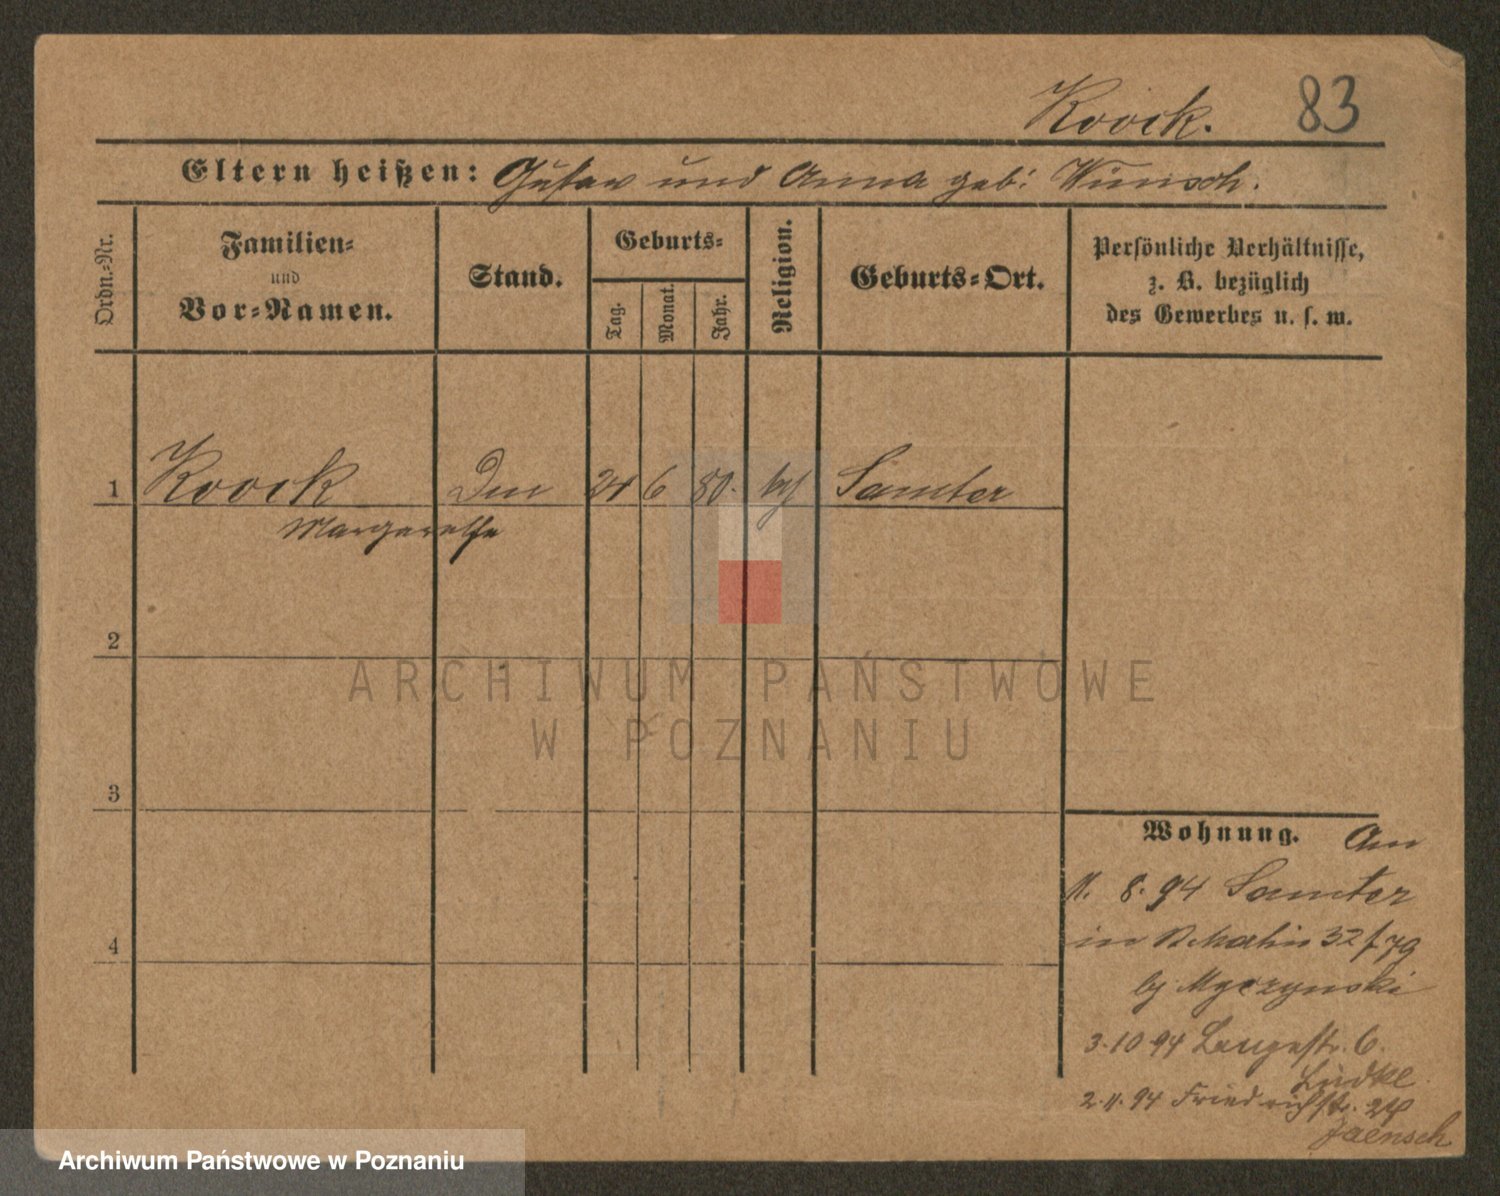 Koock. 83
Eltern heißen: Gustav und Anna geb: Wunsch.
Ordn.-Nr.
Familien-
und
Vor-Namen.
Stand.
Geburts-
Tag.
Monat.
Jahr.
Religion.
Geburts-Ort.
Persönliche Verhältnisse,
z. B. bezüglich
des Gewerbes u. s. w.
1 Koock 6 80. Samter
Margarethe
2
3
4
Wohnung. Am
11. 8. 94 Samter
in 32/79
by Myczynski
3. 10 94 Langestr. 6.
Lüdke
2. 11. 94 Friedrichstr. 24
Jaensch
ARCHIWUM PAŃSTWOWE
W POZNANIU
Archiwum Państwowe w Poznaniu